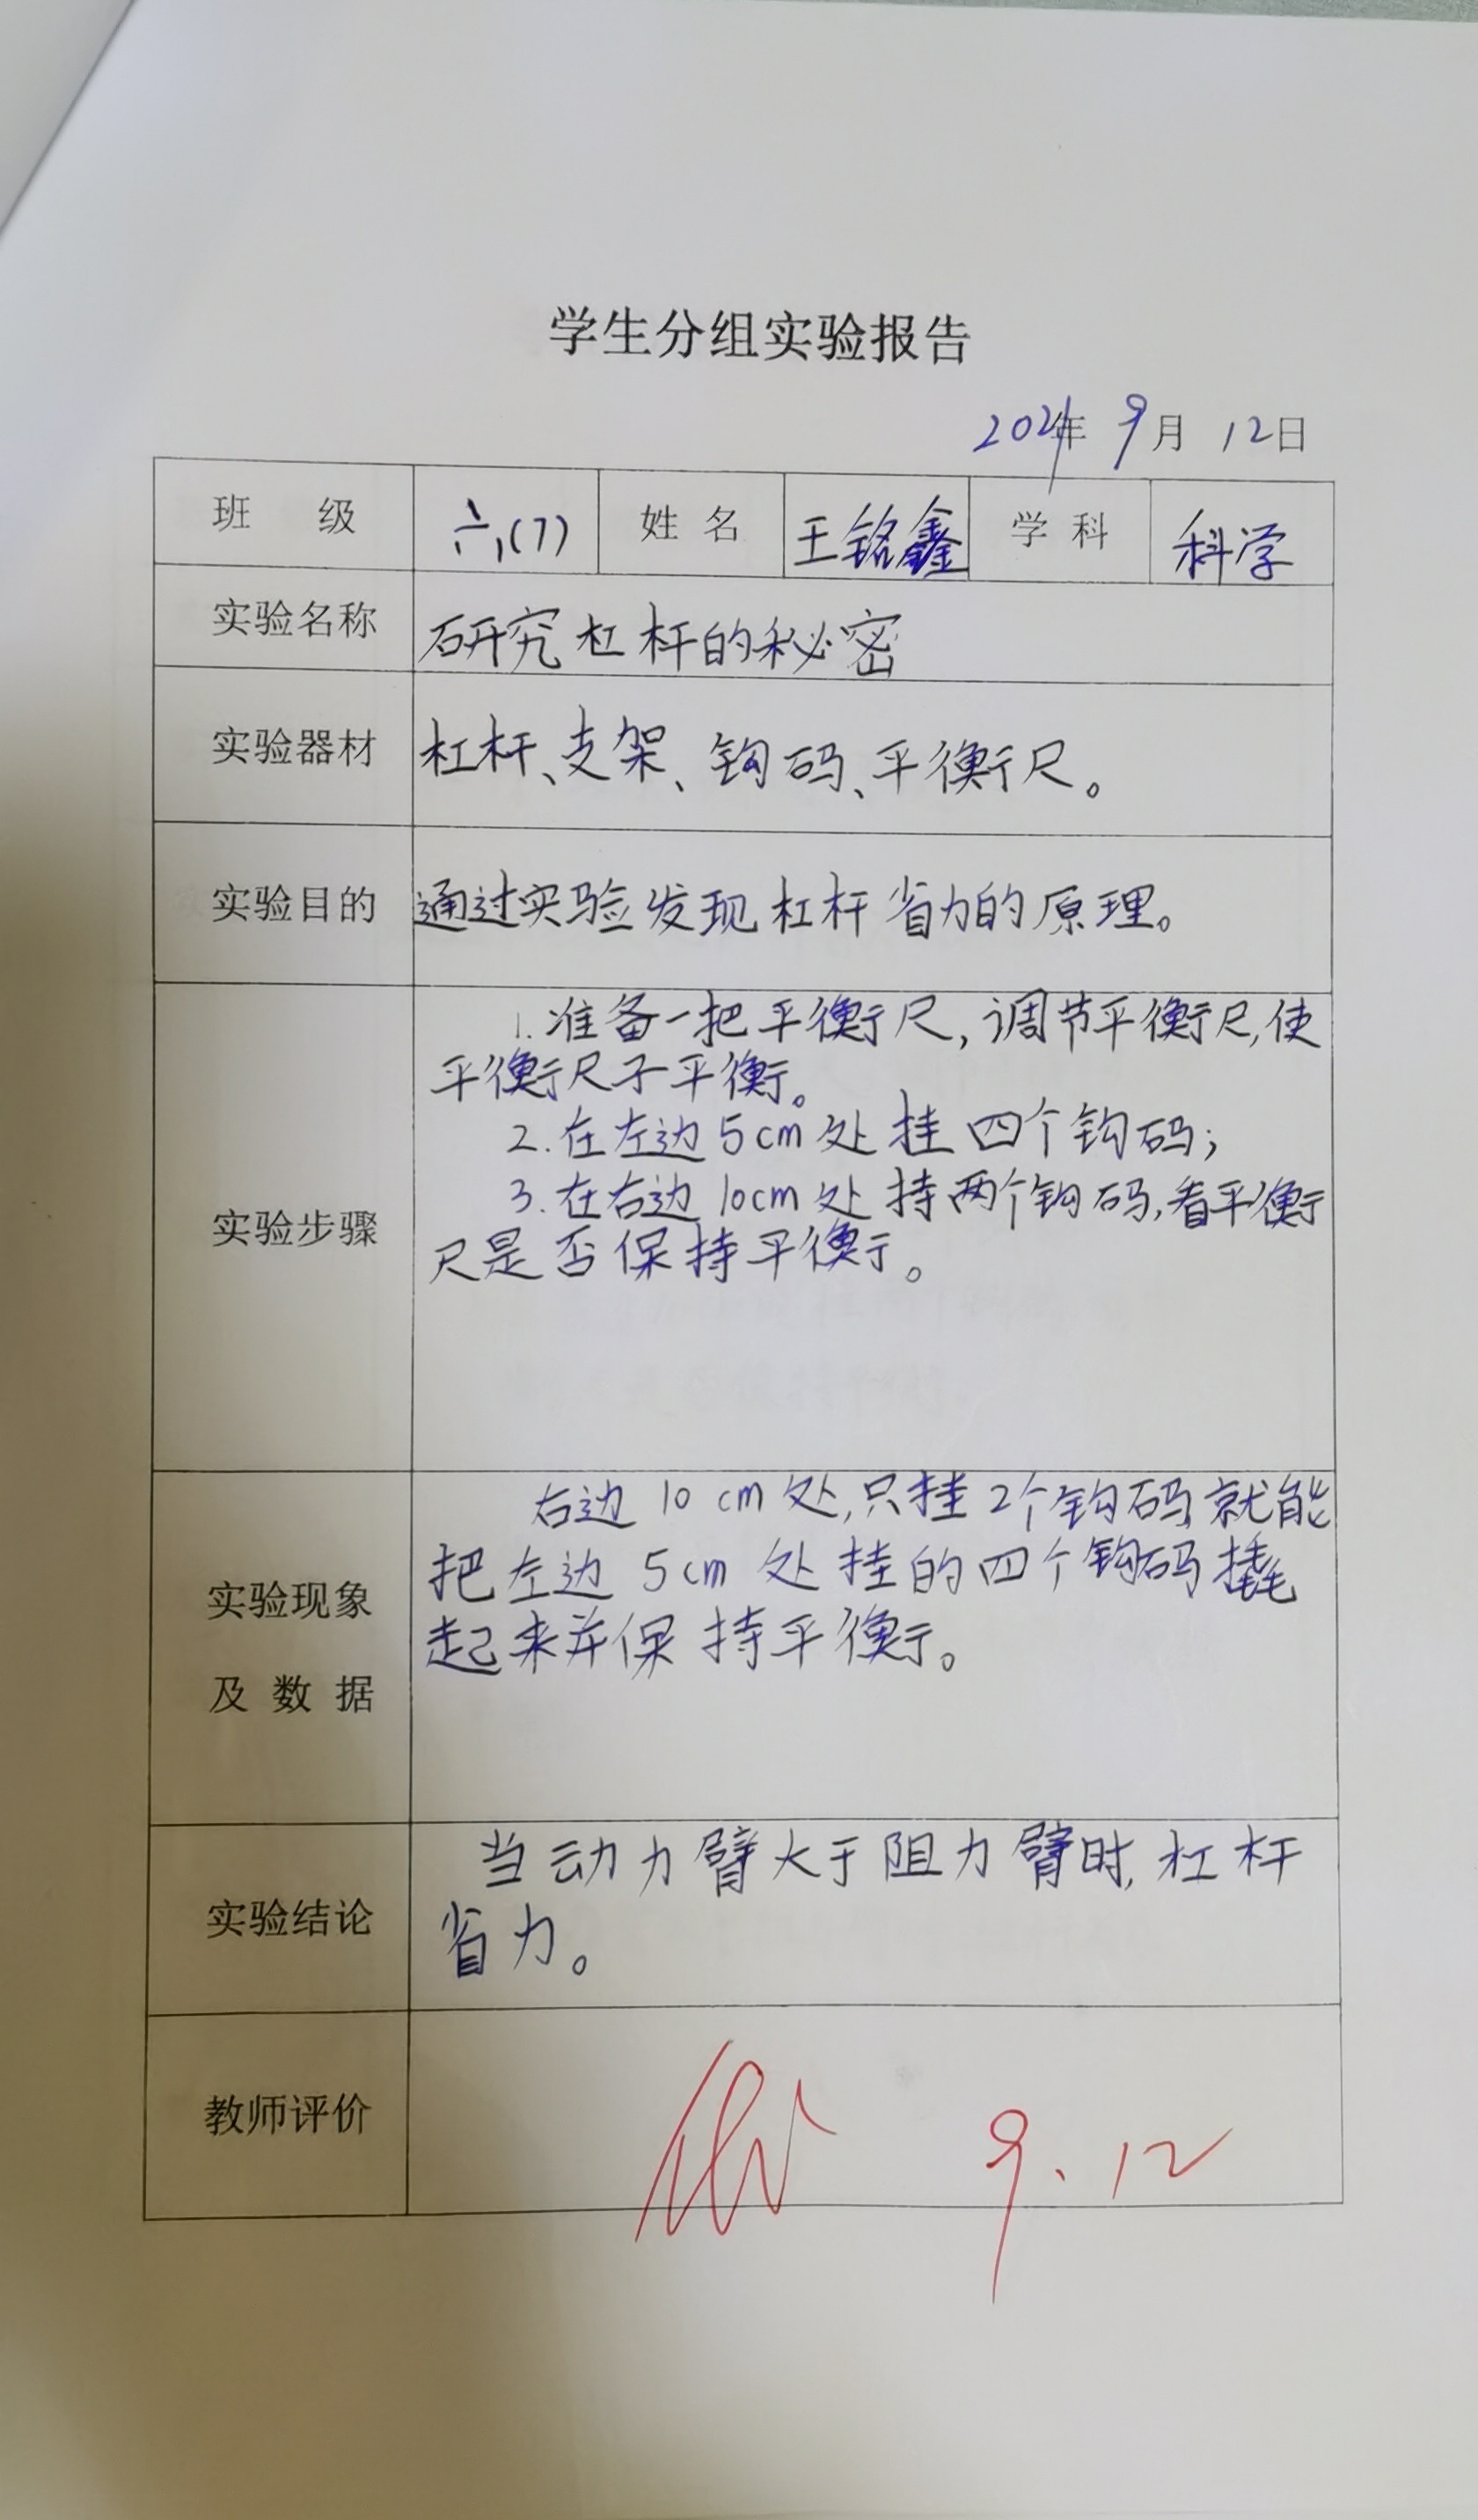 学生分组实验报告
2021年 9月 12日
班 级 六(7) 姓 名 王铭鑫 学 科 科学
实验名称 研究杠杆的秘密
实验器材 杠杆、支架、钩码、平衡尺。
实验目的 通过实验发现杠杆省力的原理。
1.准备一把平衡尺,调节平衡尺,使
平衡尺子平衡。
2.在左边5cm处挂四个钩码;
实验步骤
3.在右边10cm处持两个钩码,看平衡
尺是否保持平衡。
右边10cm处,只挂2个钩码就能
把左边5cm处挂的四个钩码撬
起来并保持平衡。
实验现象
及数据
当动力臂大于阻力臂时,杠杆
省力。
实验结论
教师评价
9.12